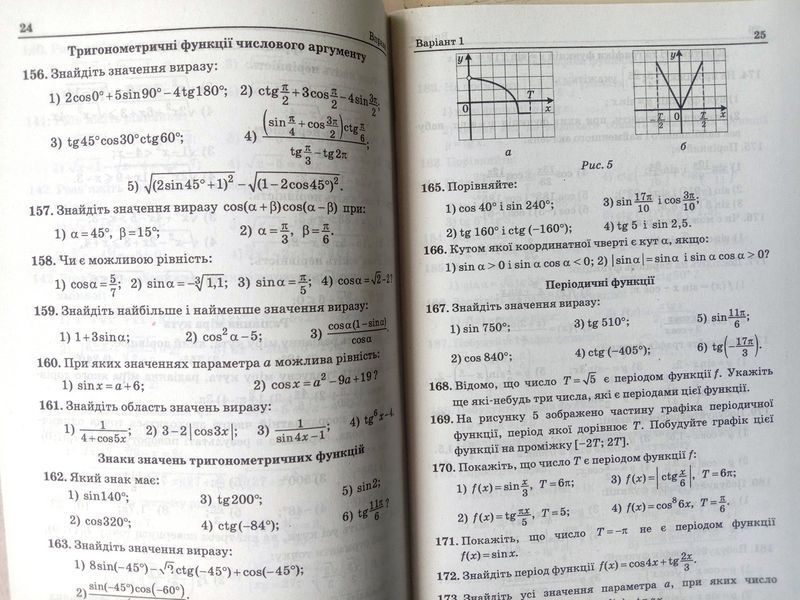 24
Варіан
Тригонометричні функції числового аргументу
156. Знайдіть значення виразу:
1) 2cos0° + 5sin90° − 4tg180°; 2) ctg π/2 + 3cos π/2 − 4sin 3π/2;
3) tg45°cos30°ctg60°; 4) (sin π/4 + cos 3π/2)ctg π/6 / (tg π/3 − tg2π);
5) √((2sin45°+1)²) − √((1−2cos45°)²).
157. Знайдіть значення виразу cos(α+β)cos(α−β) при:
1) α = 45°, β = 15°; 2) α = π/3, β = π/6.
158. Чи є можливою рівність:
1) cosα = 5/7; 2) sinα = −∛1,1; 3) sinα = π/5; 4) cosα = √2 − 2?
159. Знайдіть найбільше і найменше значення виразу:
1) 1 + 3sinα; 2) cos²α − 5; 3) cosα(1 − sinα)/cosα
160. При яких значеннях параметра a можлива рівність:
1) sinx = a + 6; 2) cosx = a² − 9a + 19?
161. Знайдіть область значень виразу:
1) 1/(4 + cos5x); 2) 3 − 2|cos3x|; 3) 1/(sin4x − 1); 4) tg⁶x − 4
Знаки значень тригонометричних функцій
162. Який знак має:
1) sin140°; 3) tg200°; 5) sin2;
2) cos320°; 4) ctg(−84°); 6) tg 11π/6?
163. Знайдіть значення виразу:
1) 8sin(−45°) − √2ctg(−45°) + cos(−45°);
2) sin(−45°)cos(−60°)
Варіант 1
25
y
T
0
x
а
y
−T/2
0
T/2
x
б
Рис. 5
165. Порівняйте:
1) cos 40° і sin 240°; 3) sin 17π/10 і cos 3π/10;
2) tg 160° і ctg (−160°); 4) tg 5 і sin 2,5.
166. Кутом якої координатної чверті є кут α, якщо:
1) sin α > 0 і sin α cos α < 0; 2) |sin α| = sin α і sin α cos α > 0?
Періодичні функції
167. Знайдіть значення виразу:
1) sin 750°; 3) tg 510°; 5) sin 11π/6;
2) cos 840°; 4) ctg (−405°); 6) tg(−17π/3).
168. Відомо, що число T = √5 є періодом функції f. Укажіть
ще які-небудь три числа, які є періодами цієї функції.
169. На рисунку 5 зображено частину графіка періодичної
функції, період якої дорівнює T. Побудуйте графік цієї
функції на проміжку [−2T; 2T].
170. Покажіть, що число T є періодом функції f:
1) f(x) = sin x/3, T = 6π; 3) f(x) = |ctg x/6|, T = 6π;
2) f(x) = tg πx/5, T = 5; 4) f(x) = cos⁸6x, T = π/6.
171. Покажіть, що число T = −π не є періодом функції
f(x) = sinx.
172. Знайдіть період функції f(x) = cos4x + tg 2x/3.
173. Знайдіть усі значення параметра a, при яких число